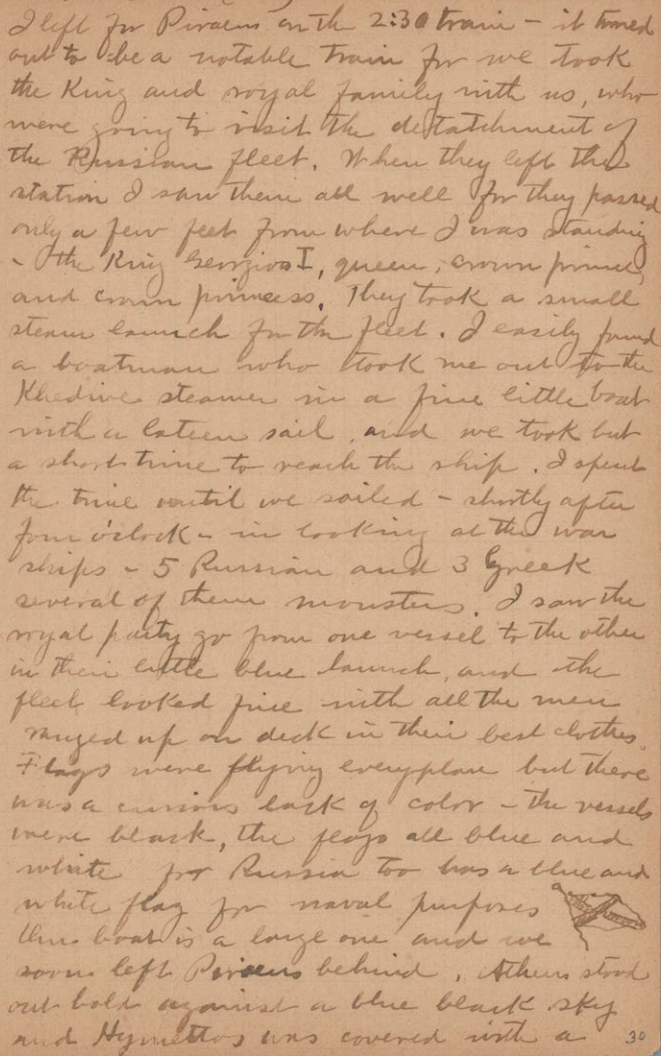 I left for Piraeus on the 2:30 train - it turned
out to be a notable train for we took
the King and royal family with us, who
were going to visit the detatchment of
the Russian fleet. When they left the
station I saw them all well for they passed
only a few feet from where I was standing
- the King Georgios I, queen, crown prince,
and crown princess. They took a small
steam launch for the fleet. I easily found
a boatman who took me out to the
Khedive steamer in a fine little boat
with a lateen sail, and we took but
a short time to reach the ship. I spent
the time until we sailed - shortly after
four o'clock - in looking at the war
ships - 5 Russian and 3 Greek
several of them monsters. I saw the
royal party go from one vessel to the other
in their little blue launch, and the
fleet looked fine with all the men
ranged up on deck in their best clothes.
Flags were flying everyplace but there
was a curious lack of color - the vessels
were black, the flags all blue and
white for Russia too has a blue and
white flag for naval purposes
this boat is a large one and we
soon left Piraeus behind. Athens stood
out bold against a blue black sky
and Hymettos was covered with a
30